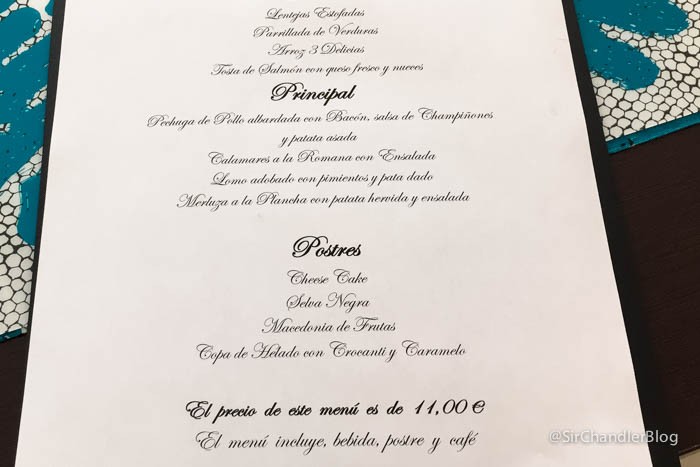 Lentejas Estofadas
Parrillada de Verduras
Arroz 3 Delicias
Tosta de Salmón con queso fresco y nueces
Principal
Pechuga de Pollo albardada con Bacón, salsa de Champiñones
y patata asada
Calamares a la Romana con Ensalada
Lomo adobado con pimientos y pata dado
Merluza a la Plancha con patata hervida y ensalada
Postres
Cheese Cake
Selva Negra
Macedonia de Frutas
Copa de Helado con Crocanti y Caramelo
El precio de este menú es de 11,00 €
El menú incluye, bebida, postre y café
@SirChandlerBlog